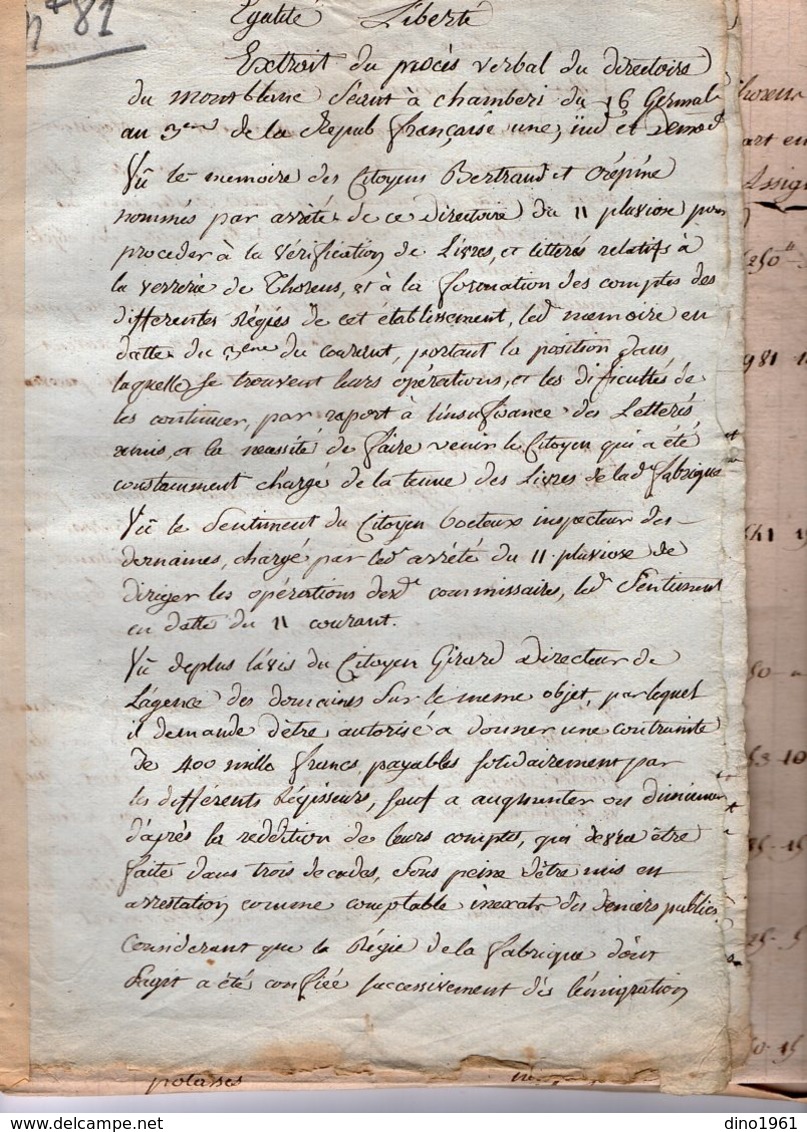 n° 81
Egalité Liberté
Extrait du procès verbal du directoire
du montblanc séant à chamberi du 16 Germal
au 3eme de la Repub française une, ind et Democ
Vû le memoire des Citoyens Bertrand et Crépine
nommés par arrèté de ce Directoire du 11 pluviose pour
proceder à la vérification de Livres, et lettres relatifs à
la verrerie de Thorens, et à la formation des comptes des
differentes Régies de cet établissement, led memoire en
datte du 3eme du courant, portant la position dans
laquelle se trouvent leurs opérations, et les difficultés de
les continuer, par raport à l'insufisance des Lettres
remis, et la necessité de faire venir le Citoyen qui a été
constamment chargé de la tenue des Livres de lad fabrique
Vû le Sentiment du Citoyen inspecteur des
domaines, chargé par led arrèté du 11 pluviose de
diriger les opérations desd commissaires, led Sentiment
en datte du 11 courant.
Vû deplus l'avis du Citoyen Girard Directeur de
L'agence des domaines sur le meme objet, par lequel
il demande d'être autorisé a donner une contrainte
de 400 mille francs payables solidairement par
les différents Régisseurs, sauf a augmenter ou diminuer
d'après la reddition de leurs comptes, qui devra être
faite dans trois decades, sous peine d'être mis en
arrestation comme comptable inexact des deniers publics.
Considerant que la Régie de la fabrique dont
s'agit a été confiée successivement dès l'émigration
potasses
dino1961